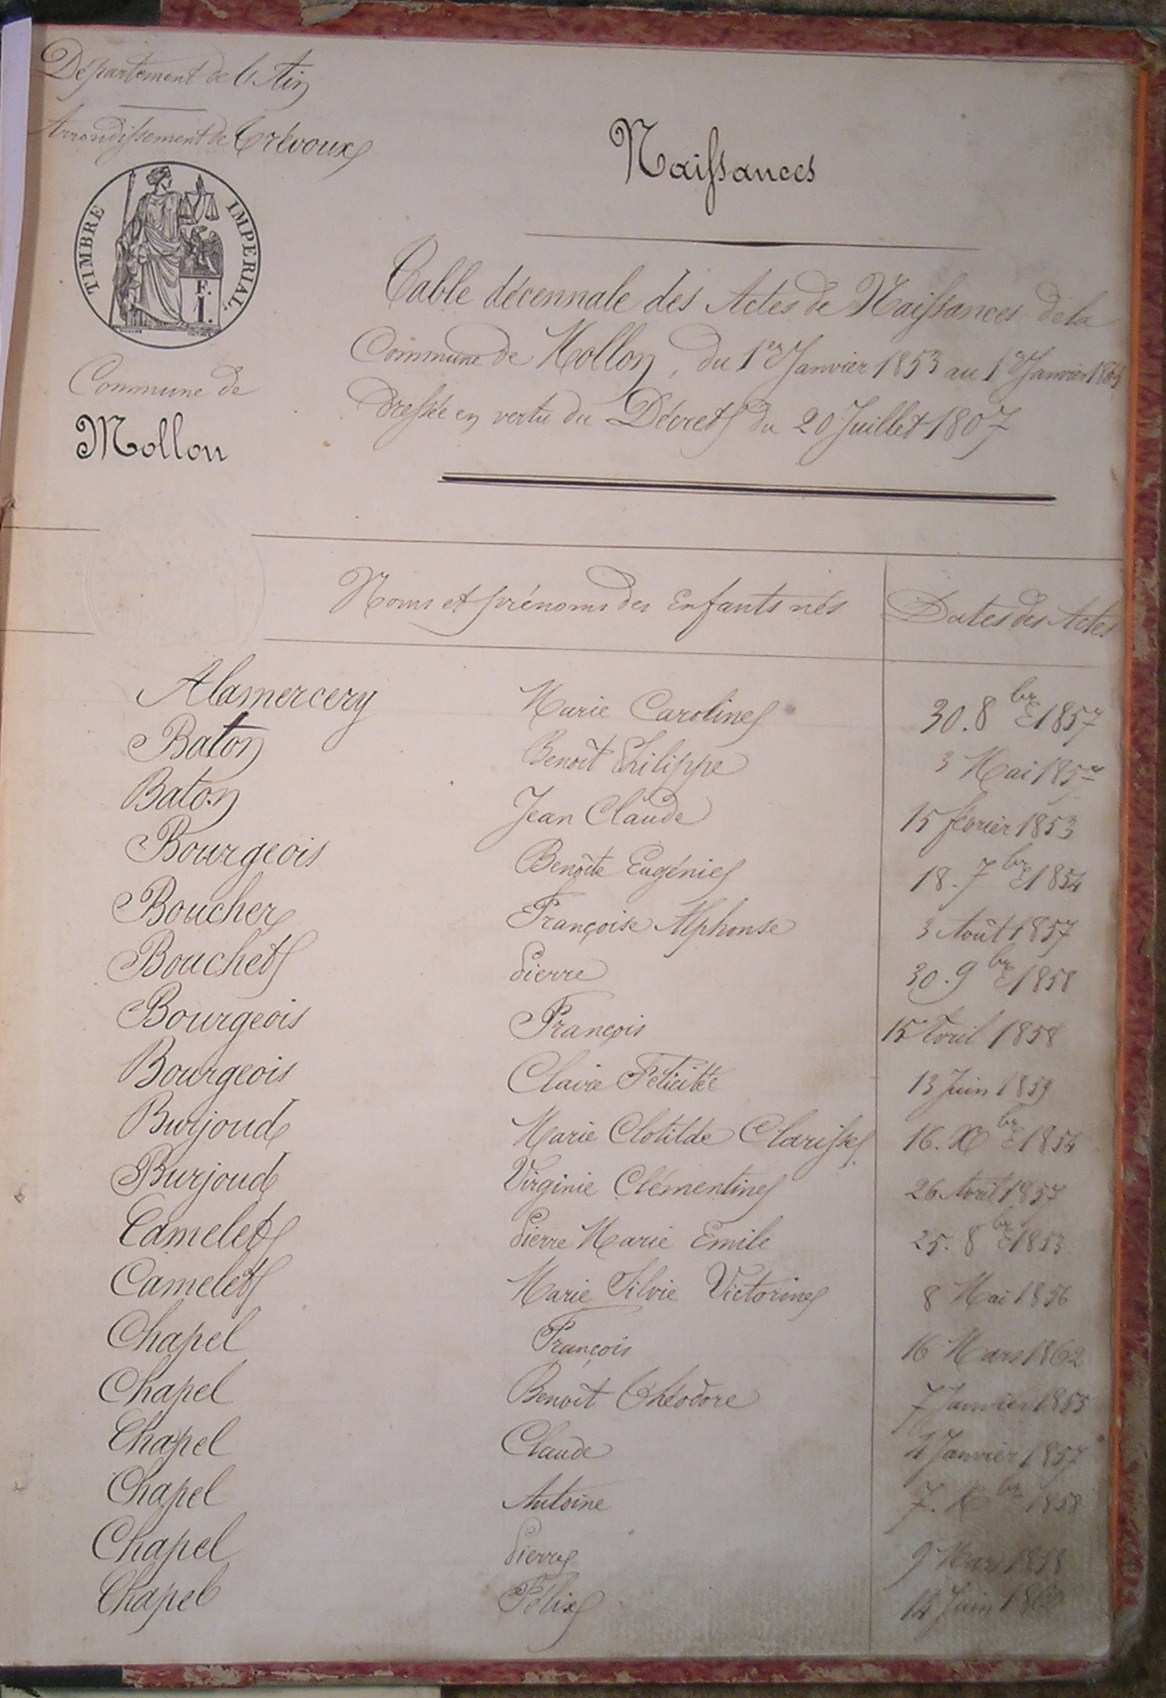 Département de l'Ain
Arrondissement de Trévoux
TIMBRE IMPERIAL
F. I.
Commune de
Mollon
Naissances
Table décennale des Actes de Naissances de la
Commune de Mollon, du 1er Janvier 1853 au 1er Janvier
dressée en vertu du Décret du 20 Juillet 1807
Noms et prénoms des Enfants nés Dates des Actes
Alamercery Marie Caroline 30. 8bre 1857
Baton Benoît Philippe 3 Mai 1857
Baton Jean Claude 15 février 1853
Bourgeois Benoîte Eugénie 18. 7bre 1854
Boucher Françoise Alphonse 3 Août 1857
Bouchet Pierre 30. 9bre 1858
Bourgeois François 15 Avril 1858
Bourgeois Claire Félicité 13 Juin 1859
Burjoud Marie Clotilde Clarisse 16. Xbre 1854
Burjoud Virginie Clémentine 26 1857
Camelet Pierre Marie Emile 25. 8bre 1853
Camelet Marie Silvie Victorine 8 Mai 1856
Chapel François 16 Mars 1862
Chapel Benoit Théodore 7 Janvier 1855
Chapel Claude 4 Janvier 1857
Chapel Antoine 7. Xbre 1858
Chapel Pierre 9 Mars 1858
Chapel Félix 14 Juin